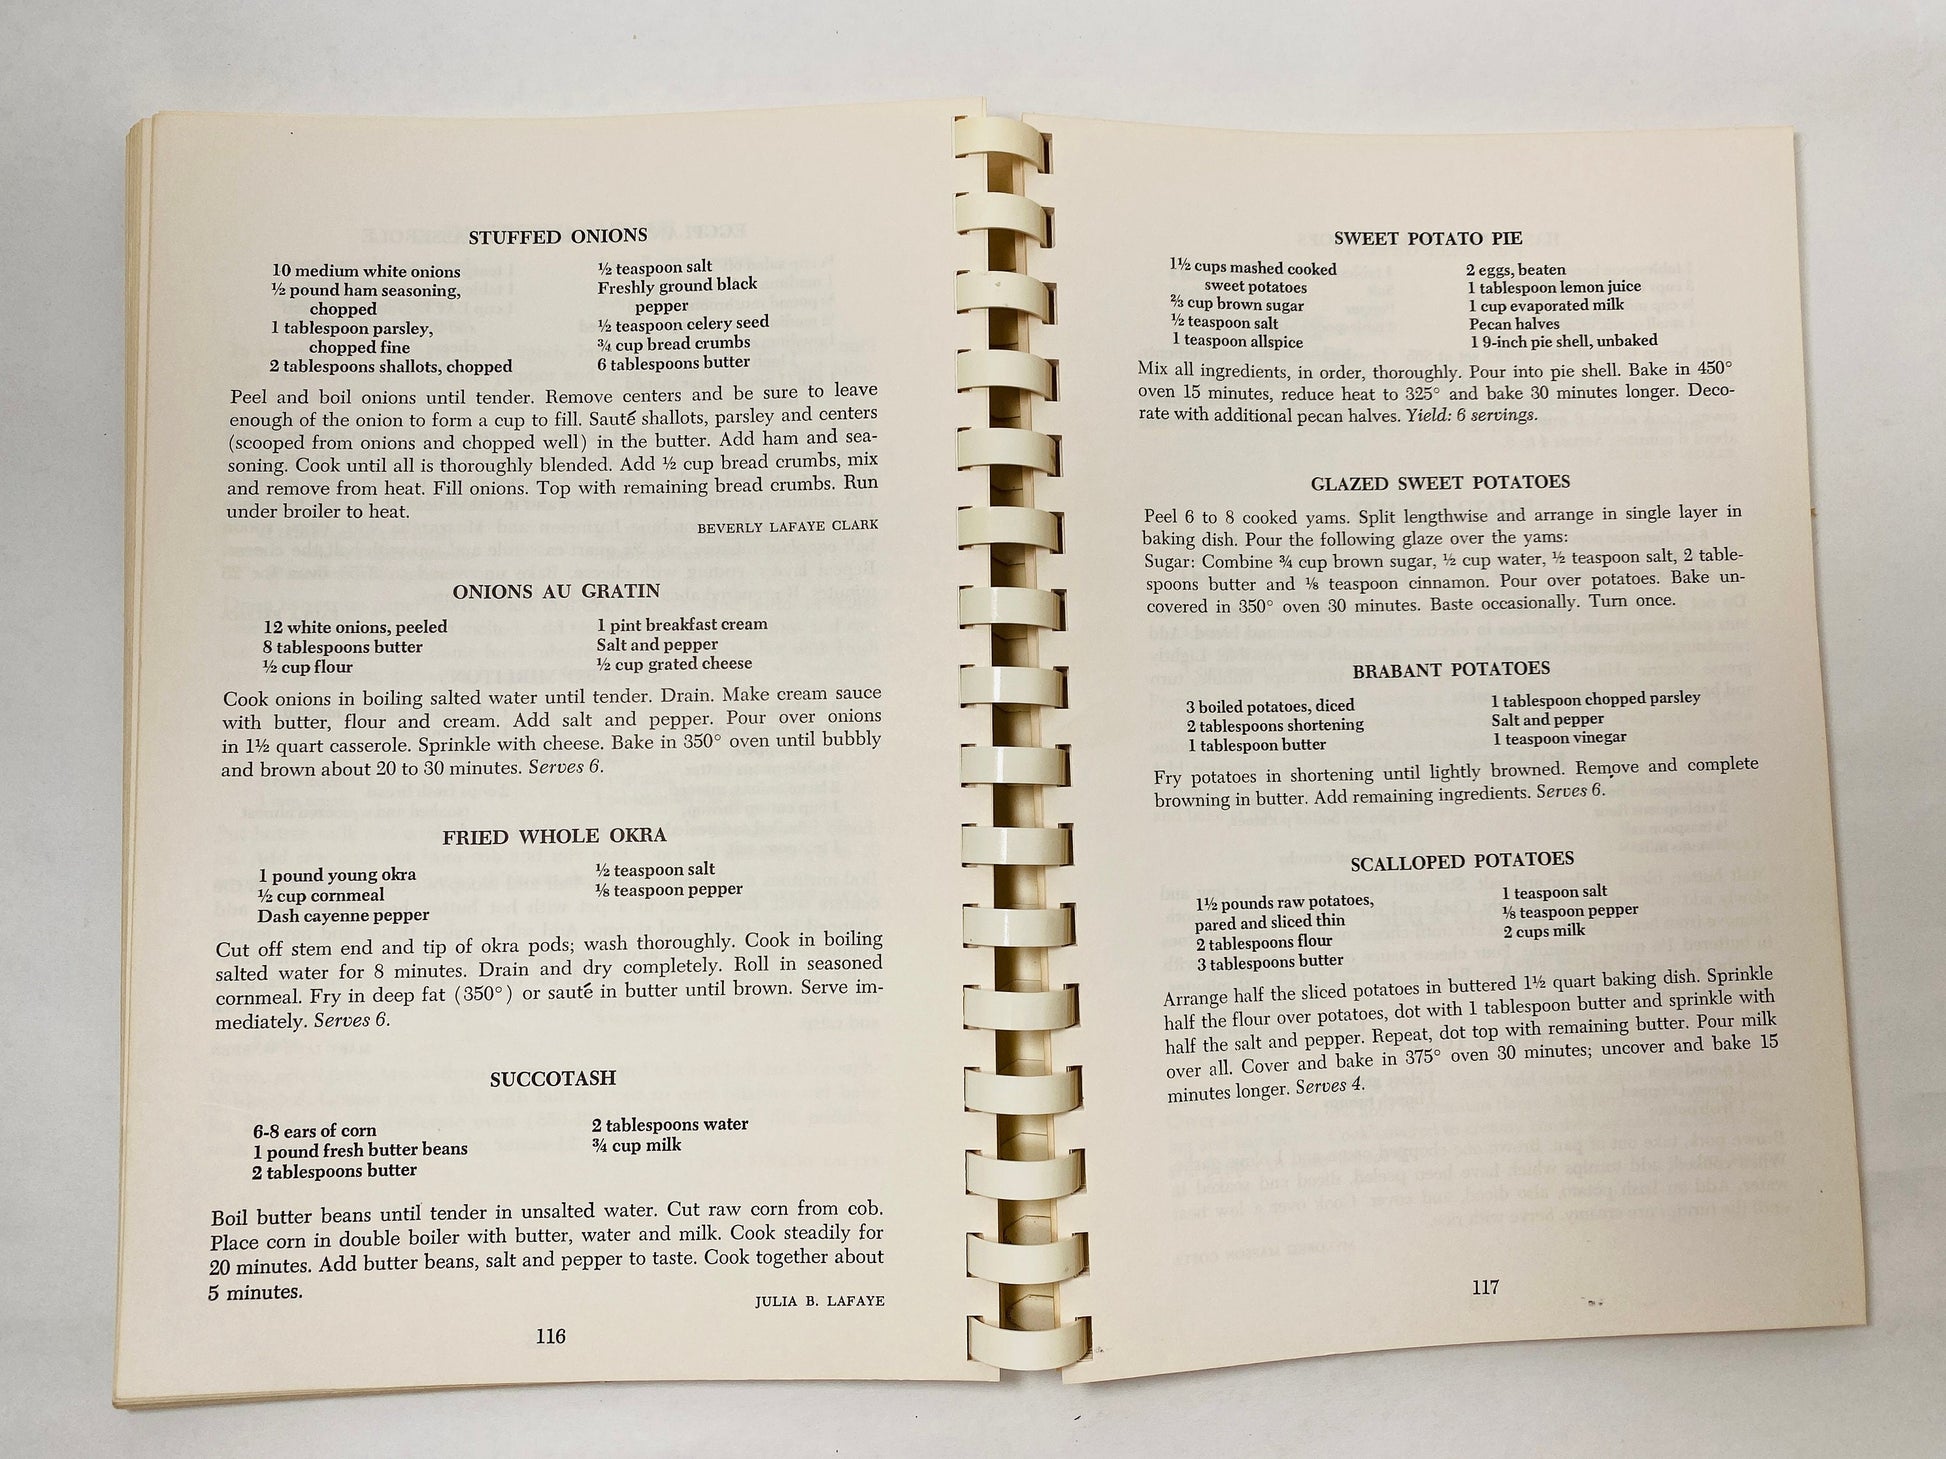 STUFFED ONIONS
10 medium white onions
½ pound ham seasoning,
chopped
1 tablespoon parsley,
chopped fine
2 tablespoons shallots, chopped
½ teaspoon salt
Freshly ground black
pepper
½ teaspoon celery seed
¾ cup bread crumbs
6 tablespoons butter
Peel and boil onions until tender. Remove centers and be sure to leave
enough of the onion to form a cup to fill. Sauté shallots, parsley and centers
(scooped from onions and chopped well) in the butter. Add ham and sea-
soning. Cook until all is thoroughly blended. Add ½ cup bread crumbs, mix
and remove from heat. Fill onions. Top with remaining bread crumbs. Run
under broiler to heat.
BEVERLY LAFAYE CLARK
ONIONS AU GRATIN
12 white onions, peeled
8 tablespoons butter
½ cup flour
1 pint breakfast cream
Salt and pepper
½ cup grated cheese
Cook onions in boiling salted water until tender. Drain. Make cream sauce
with butter, flour and cream. Add salt and pepper. Pour over onions
in 1½ quart casserole. Sprinkle with cheese. Bake in 350° oven until bubbly
and brown about 20 to 30 minutes. Serves 6.
FRIED WHOLE OKRA
1 pound young okra
½ cup cornmeal
Dash cayenne pepper
½ teaspoon salt
⅛ teaspoon pepper
Cut off stem end and tip of okra pods; wash thoroughly. Cook in boiling
salted water for 8 minutes. Drain and dry completely. Roll in seasoned
cornmeal. Fry in deep fat (350°) or sauté in butter until brown. Serve im-
mediately. Serves 6.
SUCCOTASH
6-8 ears of corn
1 pound fresh butter beans
2 tablespoons butter
2 tablespoons water
¾ cup milk
Boil butter beans until tender in unsalted water. Cut raw corn from cob.
Place corn in double boiler with butter, water and milk. Cook steadily for
20 minutes. Add butter beans, salt and pepper to taste. Cook together about
5 minutes.
JULIA B. LAFAYE
116
SWEET POTATO PIE
1½ cups mashed cooked
sweet potatoes
⅔ cup brown sugar
½ teaspoon salt
1 teaspoon allspice
2 eggs, beaten
1 tablespoon lemon juice
1 cup evaporated milk
Pecan halves
1 9-inch pie shell, unbaked
Mix all ingredients, in order, thoroughly. Pour into pie shell. Bake in 450°
oven 15 minutes, reduce heat to 325° and bake 30 minutes longer. Deco-
rate with additional pecan halves. Yield: 6 servings.
GLAZED SWEET POTATOES
Peel 6 to 8 cooked yams. Split lengthwise and arrange in single layer in
baking dish. Pour the following glaze over the yams:
Sugar: Combine ¾ cup brown sugar, ½ cup water, ½ teaspoon salt, 2 table-
spoons butter and ⅛ teaspoon cinnamon. Pour over potatoes. Bake un-
covered in 350° oven 30 minutes. Baste occasionally. Turn once.
BRABANT POTATOES
3 boiled potatoes, diced
2 tablespoons shortening
1 tablespoon butter
1 tablespoon chopped parsley
Salt and pepper
1 teaspoon vinegar
Fry potatoes in shortening until lightly browned. Remove and complete
browning in butter. Add remaining ingredients. Serves 6.
SCALLOPED POTATOES
1½ pounds raw potatoes,
pared and sliced thin
2 tablespoons flour
3 tablespoons butter
1 teaspoon salt
⅛ teaspoon pepper
2 cups milk
Arrange half the sliced potatoes in buttered 1½ quart baking dish. Sprinkle
half the flour over potatoes, dot with 1 tablespoon butter and sprinkle with
half the salt and pepper. Repeat, dot top with remaining butter. Pour milk
over all. Cover and bake in 375° oven 30 minutes; uncover and bake 15
minutes longer. Serves 4.
117